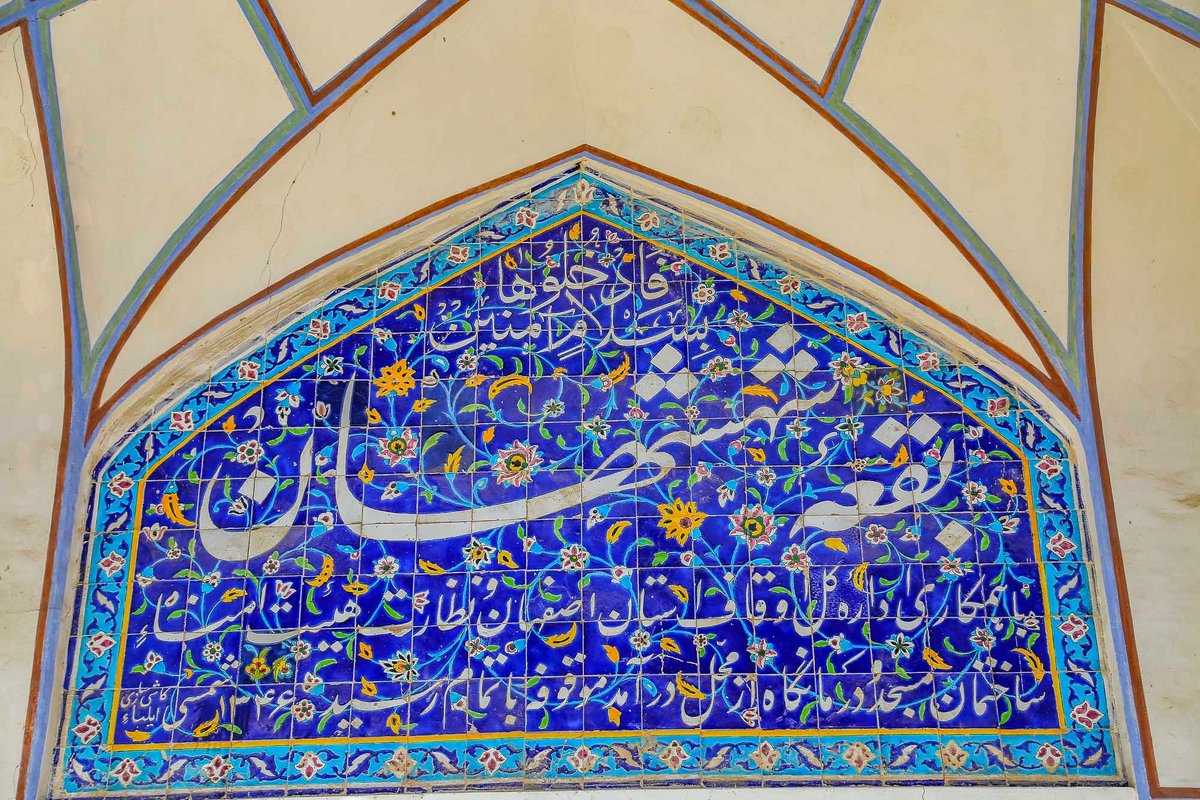 فَادْخُلُوها
بِسَلامٍ آمِنینَ
بقعه شهشهان
با همکاری اداره کل اوقاف استان اصفهان و نظارت هیئت امناء
ساختمان مسجد و درمانگاه از محل درآمد موقوفه باتمام رسید ۱۳۴۶ شمسی
کاشی پزی